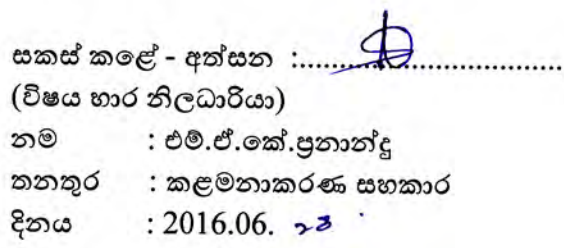 සකස් කළේ - අත්සන :..........................................
(විෂය භාර නිලධාරියා)
නම : එම්.ඒ.කේ.ප්‍රනාන්දු
තනතුර : කළමනාකරණ සහකාර
දිනය : 2016.06. 23